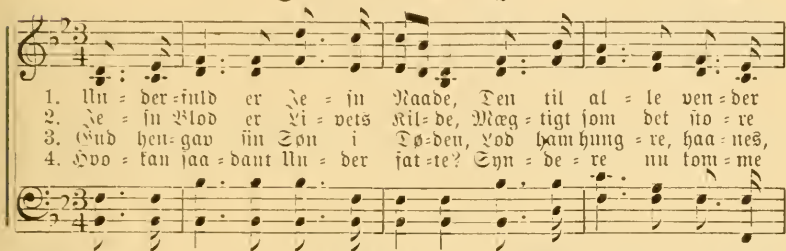 1. Un = der = fuld er Je = su Naade, Den til al = le ven = der
2. Je = su Blod er Li = vets Kil = de, Mæg = tigt som det sto = re
3. Gud hen = gav sin Søn i Dø = den, Lod ham hung = re, haa = nes,
4. Hvo = kan saa = dant Un = der fat = te? Syn = de = re nu kom = me